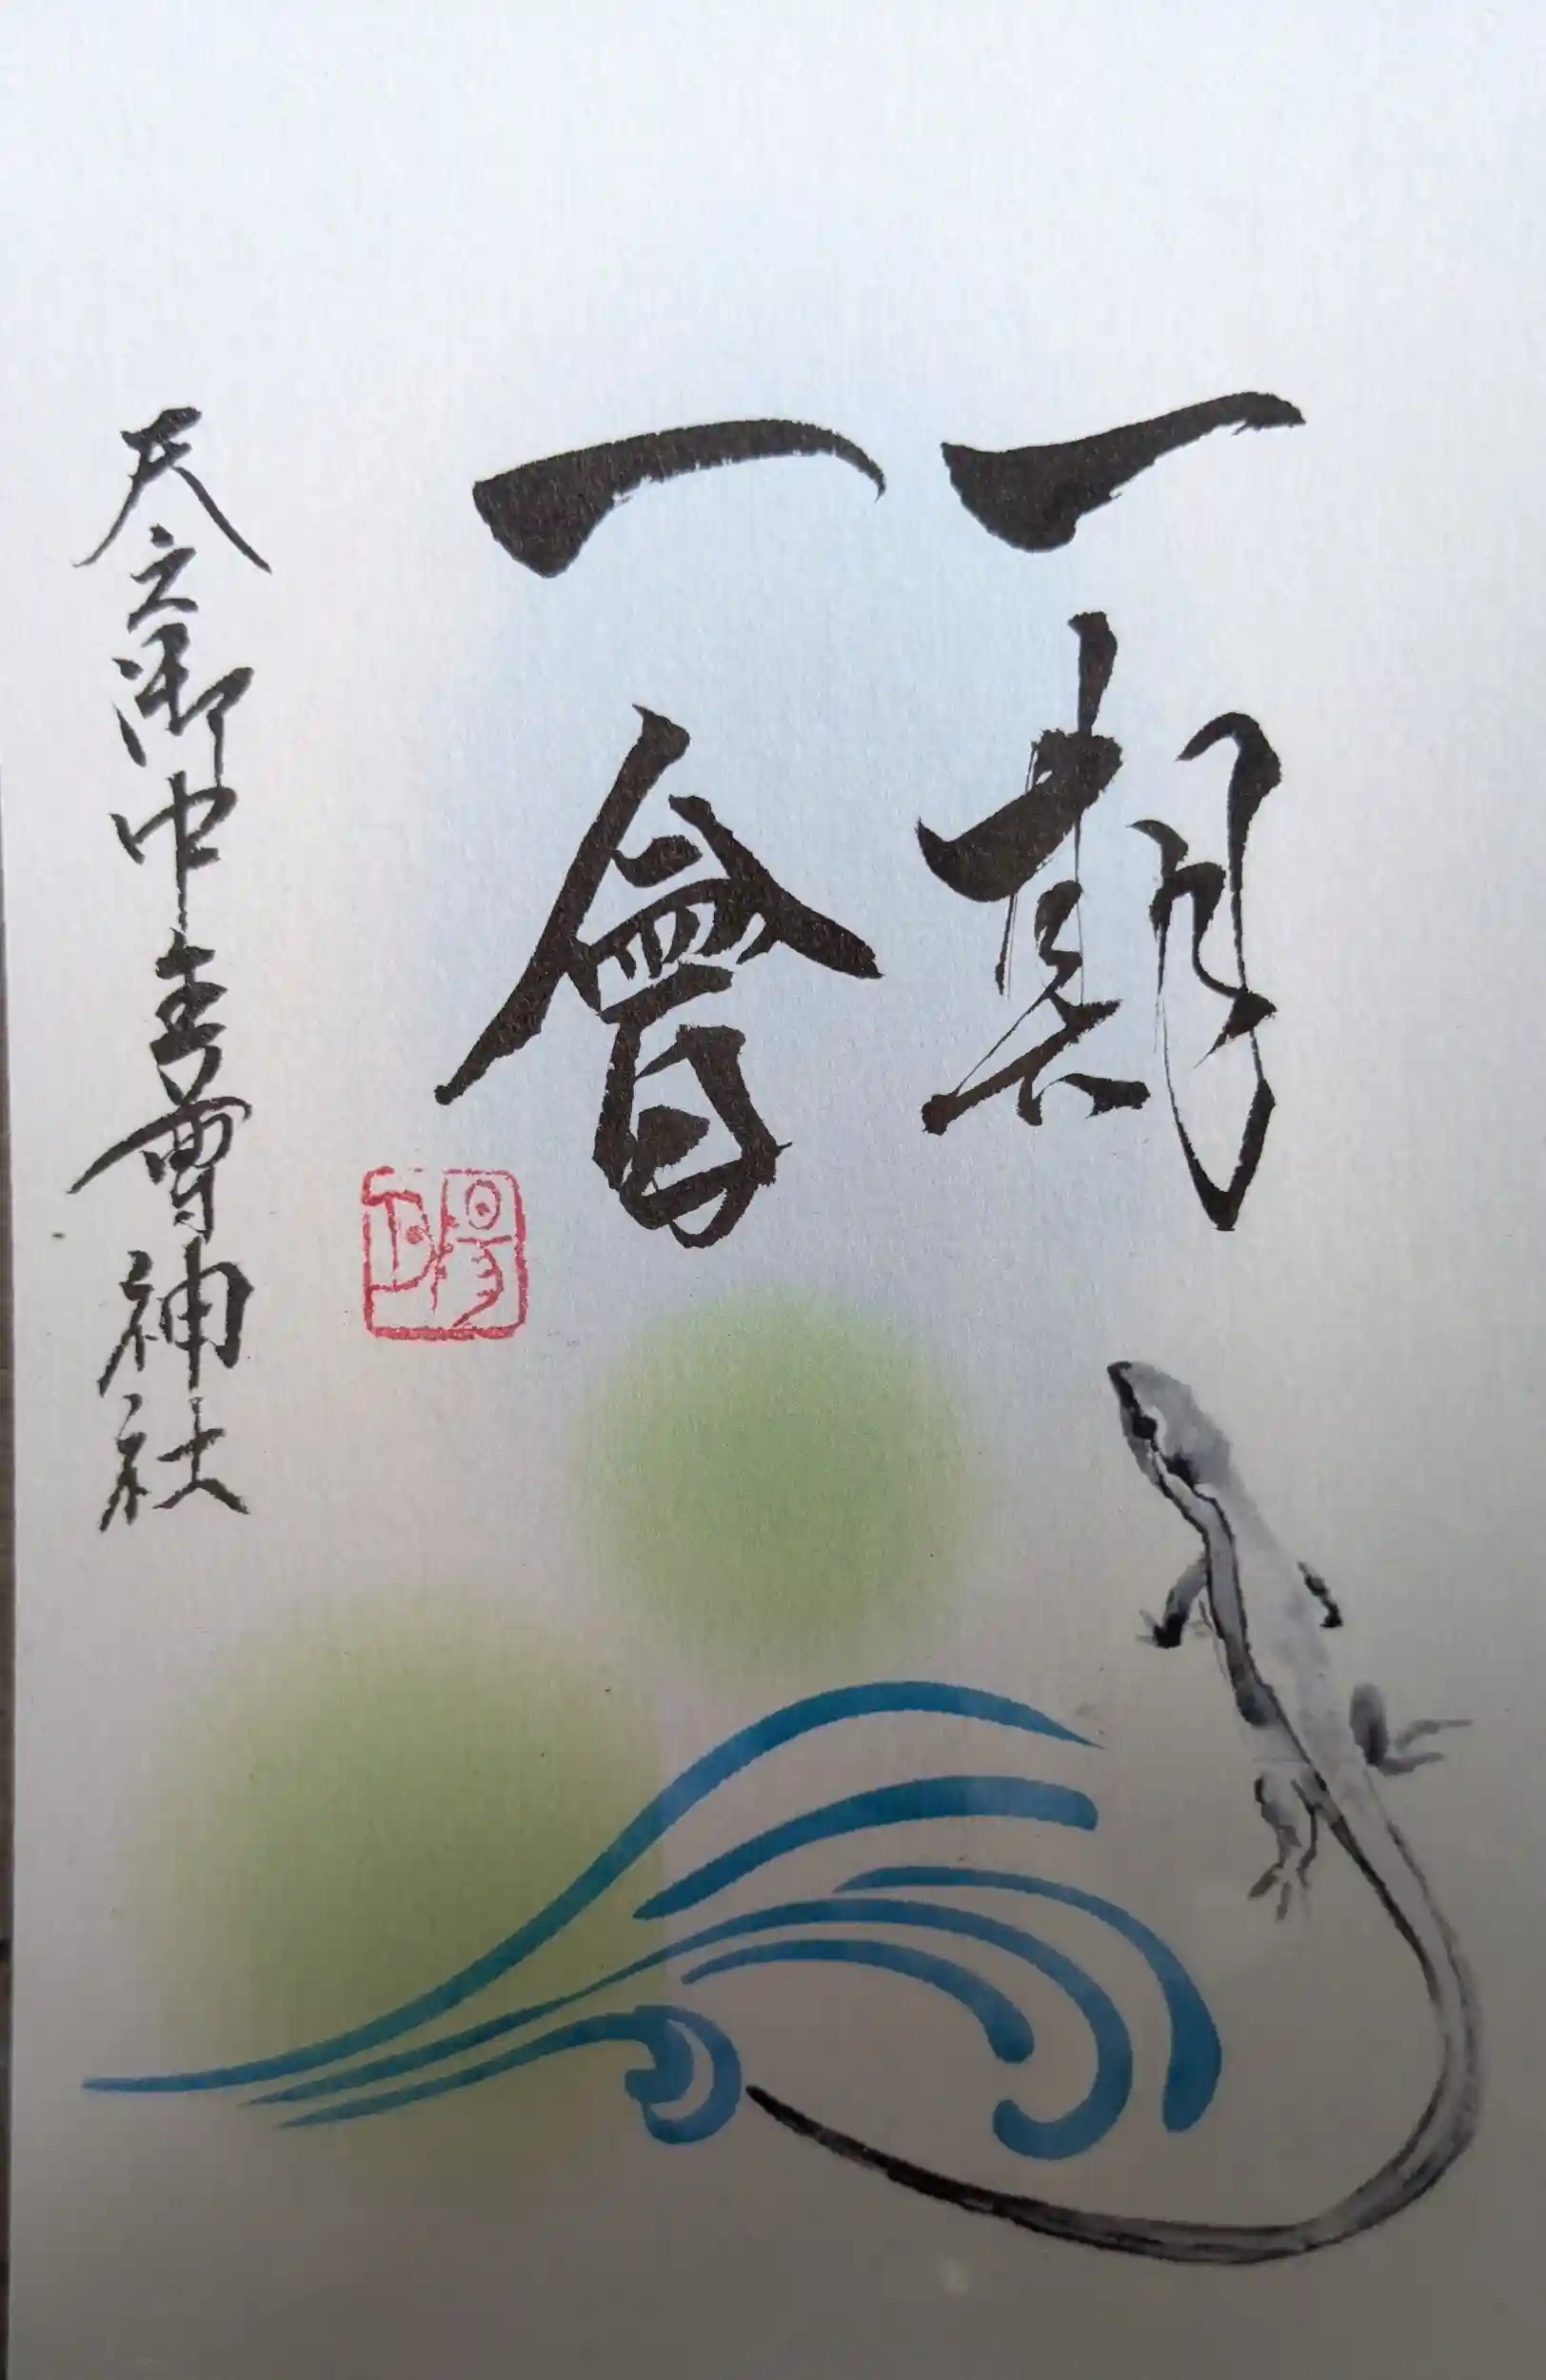 一期
一會
天之御中主尊神社